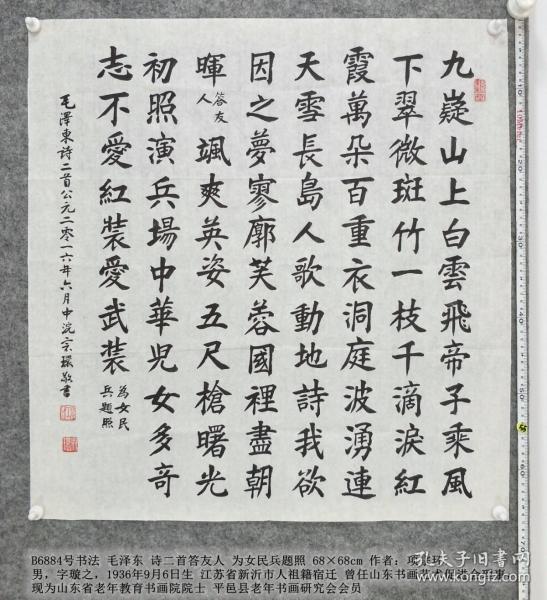 九嶷山上白雲飛帝子乘風
下翠微斑竹一枝千滴淚紅
霞萬朵百重衣洞庭波湧連
天雪長島人歌動地詩我欲
因之夢寥廓芙蓉國裡盡朝
暉 答友人 颯爽英姿五尺槍曙光
初照演兵場中華兒女多奇
志不愛紅裝愛武裝 為女民兵題照
毛澤東詩二首公元二零一六年六月中浣宗環敬書
B6884号书法 毛泽东 诗二首答友人 为女民兵题照 68×68cm 作者：项宗环
男，字璇之，1936年9月6日生 江苏省新沂市人祖籍宿迁 曾任山东书画艺术促进会理事
现为山东省老年教育书画院院士 平邑县老年书画研究会会员
孔夫子旧书网